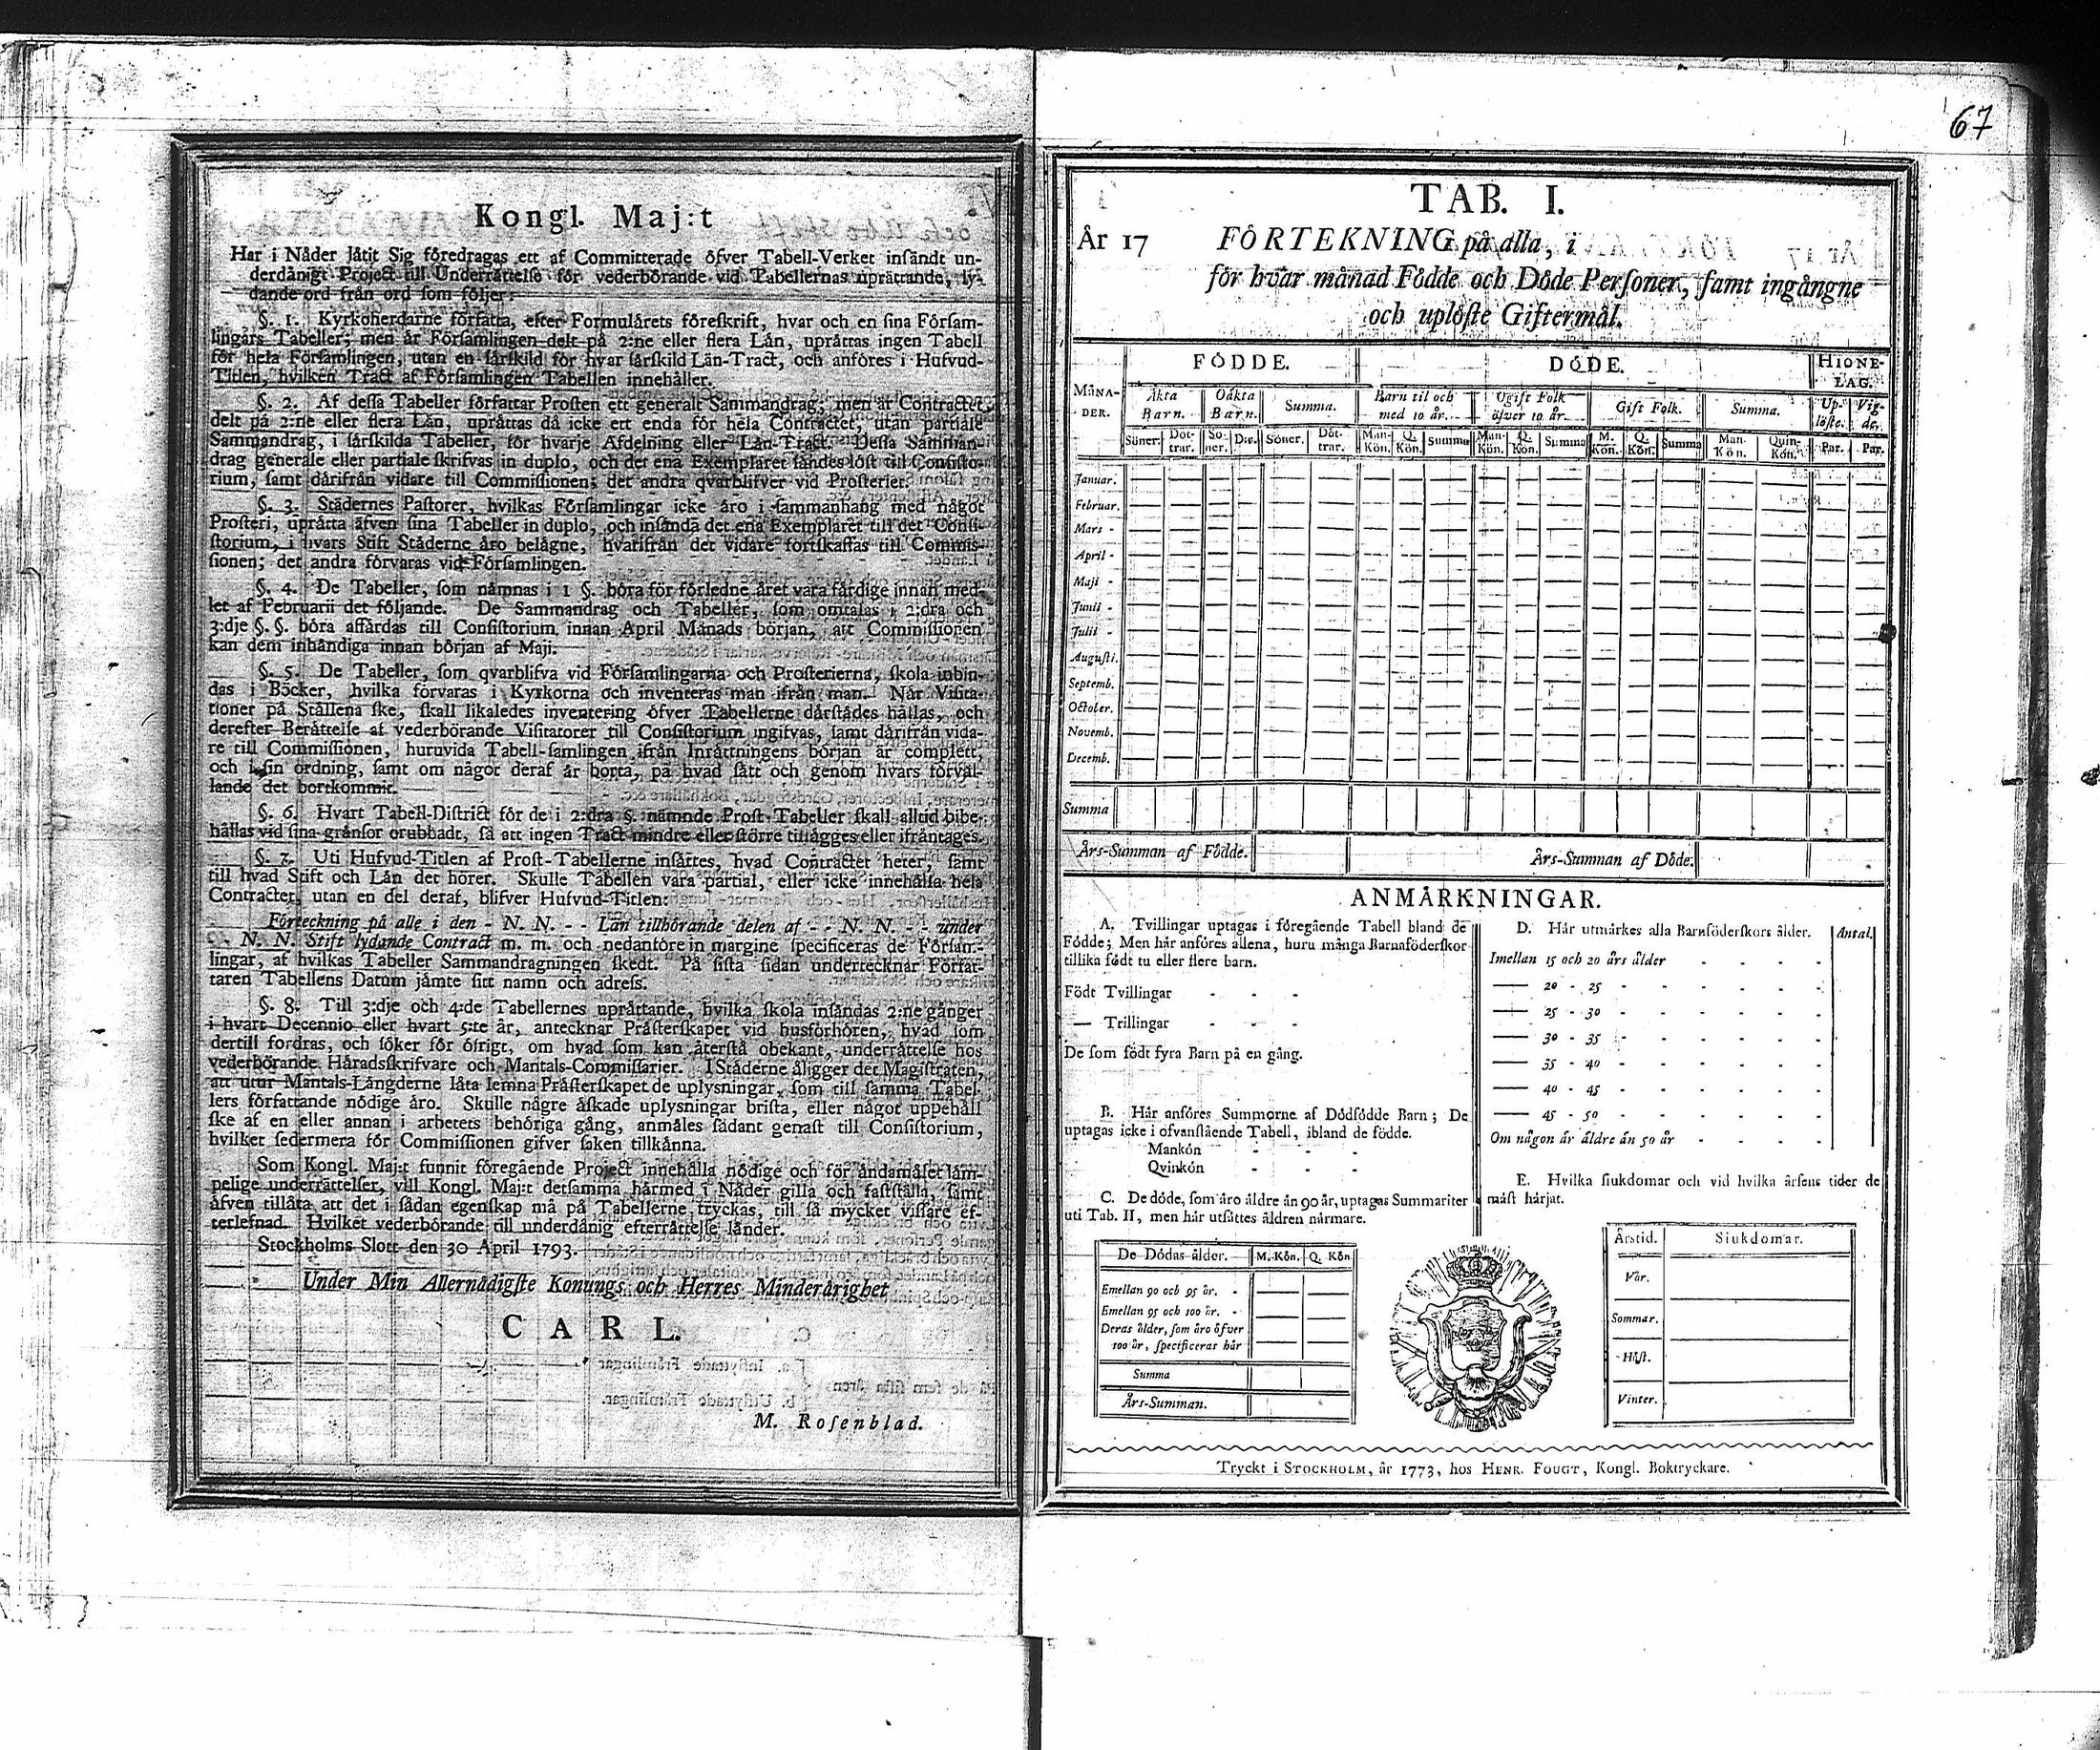 Kongl. Maj:t
Har i Nåder låtit Sig föredragas ett af Committerade öfver Tabell-Verket insändt un-
derdånigt Project till Underrättelse för vederbörande vid Tabellernas uprättande, ly-
dande ord från ord som följer:
§. 1. Kyrkoherdarne författa, efter Formulärets föreskrift, hvar och en sina Försam-
lingars Tabeller; men är Församlingen delt på 2:ne eller flera Län, uprättas ingen Tabell
för hela Församlingen, utan en särskild för hvar särskild Län-Tract, och anföres i Hufvud-
Titlen, hvilken Tract af Församlingen Tabellen innehåller.
§. 2. Af dessa Tabeller författar Prosten ett generalt Sammandrag; men är Contractet
delt på 2:ne eller flera Län, uprättas då icke ett enda för hela Contractet, utan partiale
Sammandrag, i särskilda Tabeller, för hvarje Afdelning eller Län-Tract. Dessa Samman-
drag generale eller partiale skrifvas in duplo, och det ena Exemplaret sändes löst till Consisto-
rium, samt därifrån vidare till Commissionen; det andra qvarblifver vid Prosteriet.
§. 3. Städernes Pastorer, hvilkas Församlingar icke äro i sammanhang med något
Prosteri, uprätta äfven sina Tabeller in duplo, och insända det ena Exemplaret till det Consi-
storium, i hvars Stift Städerne äro belägne, hvarifrån det vidare fortskaffas till Commis-
sionen; det andra förvaras vid Församlingen.
§. 4. De Tabeller, som nämnas i 1 §. böra för förledne året vara färdige innan med-
let af Februarii det följande. De Sammandrag och Tabeller, som omtalas i 2:dra och
3:dje §. §. böra affärdas till Consistorium innan April Månads början, att Commissionen
kan dem inhändiga innan början af Maji.
§. 5. De Tabeller, som qvarblifva vid Församlingarna och Prosterierna, skola inbin-
das i Böcker, hvilka förvaras i Kyrkorna och inventeras man ifrån man. När Visita-
tioner på Ställena ske, skall likaledes inventering öfver Tabellerne därstädes hållas, och
derefter Berättelse af vederbörande Visitatorer till Consistorium ingifvas, samt därifrån vida-
re till Commissionen, huruvida Tabell-samlingen ifrån Inrättningens början är complett,
och i sin ordning, samt om något deraf är borta, på hvad sätt och genom hvars förvål-
lande det bortkommit.
§. 6. Hvart Tabell-District för de i 2:dra §. nämnde Prost-Tabeller skall alltid bibe-
hållas vid sina gränsor orubbadt, så att ingen Tract mindre eller större tillägges eller ifråntages.
§. 7. Uti Hufvud-Titlen af Prost-Tabellerne insättes, hvad Contractet heter, samt
till hvad Stift och Län det hörer. Skulle Tabellen vara partial, eller icke innehålla hela
Contractet, utan en del deraf, blifver Hufvud-Titlen:
Förteckning på alle i den - N. N. - - Län tillhörande delen af - - N. N. - - under
- - N. N. Stift lydande Contract m. m. och nedanföre in margine specificeras de Försam-
lingar, af hvilkas Tabeller Sammandragningen skedt. På sista sidan undertecknar Förfat-
taren Tabellens Datum jämte sitt namn och adress.
§. 8. Till 3:dje och 4:de Tabellernes uprättande, hvilka skola insändas 2:ne gånger
i hvart Decennio eller hvart 5:te år, antecknar Prästerskapet vid husförhören, hvad som
dertill fordras, och söker för öfrigt, om hvad som kan återstå obekant, underrättelse hos
vederbörande Häradsskrifvare och Mantals-Commissarier. I Städerne åligger det Magistraten,
att utur Mantals-Längderne låta lemna Prästerskapet de uplysningar, som till samma Tabel-
lers författande nödige äro. Skulle någre äskade uplysningar brista, eller något uppehåll
ske af en eller annan i arbetets behöriga gång, anmäles sådant genast till Consistorium,
hvilket sedermera för Commissionen gifver saken tillkänna.
Som Kongl. Maj:t funnit föregående Project innehålla nödige och för ändamålet läm-
pelige underrättelser, vill Kongl. Maj:t detsamma härmed i Nåder gilla och fastställa, samt
äfven tillåta att det i sådan egenskap må på Tabellerne tryckas, till så mycket vissare ef-
terlefnad. Hvilket vederbörande till underdånig efterrättelse länder.
Stockholms Slott den 30 April 1793.
Under Min Allernådigste Konungs och Herres Minderårighet
CARL.
M. Rosenblad.
67
TAB. I.
År 17 FÖRTEKNING på alla, i
för hvar månad Födde och Döde Personer, samt ingångne
och uplöste Giftermål.
MÅNA-
DER. FÖDDE. DÖDE. HIONE-
LAG.
Äkta
Barn. Oäkta
Barn. Summa. Barn til och
med 10 år. Ogift Folk
öfver 10 år. Gift Folk. Summa. Up-
löste. Vig-
de.
Söner. Döt-
trar. Sö-
ner. Dtr. Söner. Döt-
trar. Man-
Kön. Q.
Kön. Summa Man-
Kön. Q.
Kön. Summa M.
Kön. Q.
Kön. Summa Man-
Kön. Quin-
Kön. Par. Par.
Januar.
Februar.
Mars -
April -
Maji -
Junii -
Julii -
Augusti.
Septemb.
October.
Novemb.
Decemb.
Summa
Års-Summan af Födde. Års-Summan af Döde.
ANMÄRKNINGAR.
A. Tvillingar uptagas i föregående Tabell bland de
Födde; Men här anföres allena, huru många Barnaföderskor
tillika födt tu eller flere barn.
Födt Tvillingar - - -
— Trillingar - - -
De som födt fyra Barn på en gång.
B. Här anföres Summorne af Dödfödde Barn; De
uptagas icke i ofvanstående Tabell, ibland de födde.
Mankön - - -
Qvinkön - - -
C. De döde, som äro äldre än 90 år, uptagas Summariter
uti Tab. II, men här utsättes åldren närmare.
De Dödas ålder. M. Kön. Q. Kön
Emellan 90 och 95 år. -
Emellan 95 och 100 år. -
Deras ålder, som äro öfver
100 år, specificeras här
Summa
Års-Summan.
D. Här utmärkes alla Barnföderskors ålder. Antal.
Imellan 15 och 20 års ålder - - - -
— 20 - 25 - - - - -
— 25 - 30 - - - - -
— 30 - 35 - - - - -
— 35 - 40 - - - - -
— 40 - 45 - - - - -
— 45 - 50 - - - - -
Om någon är äldre än 50 år - - - -
E. Hvilka siukdomar och vid hvilka årsens tider de
mäst härjat.
Årstid. Siukdomar.
Vår.
Sommar.
Höst.
Vinter.
Tryckt i STOCKHOLM, år 1773, hos HENR. FOUGT, Kongl. Boktryckare.